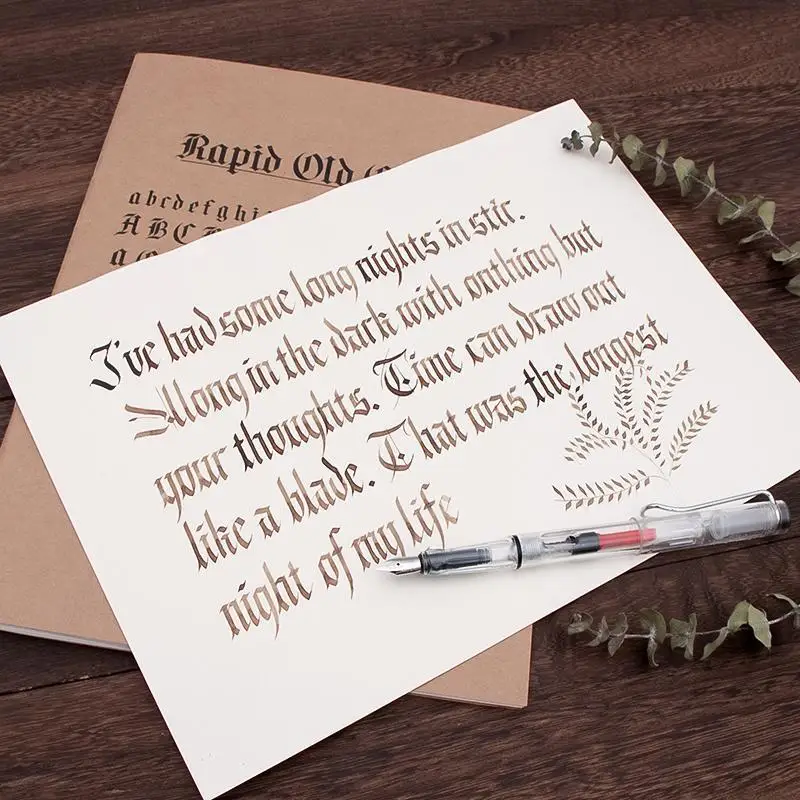 Rapid Old
abcdefghi
ABC
a
I've had some long nights in stir.
Allong in the dark with onthing but
your thoughts. Time can draw out
like a blade. That was the longest
night of my life